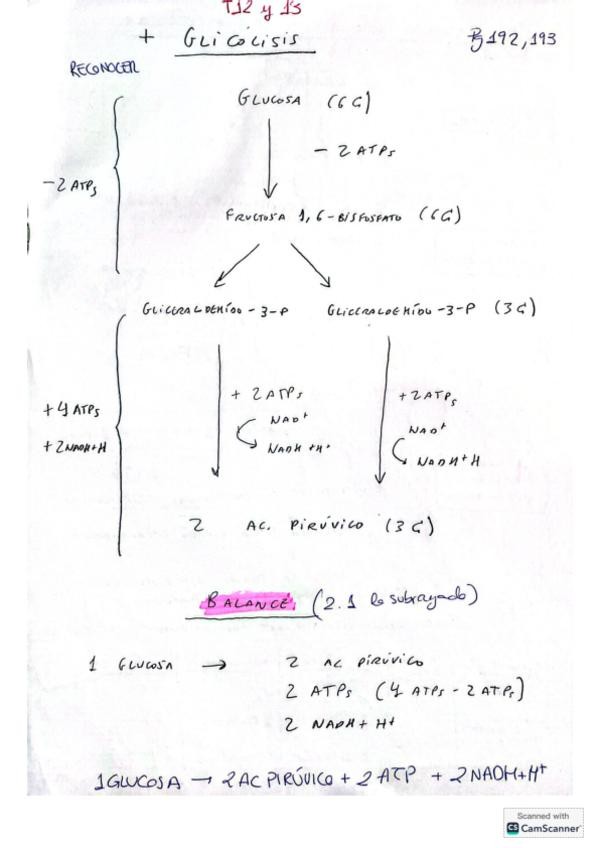 T12 y 13
+ GLICÓLISIS Pg 192,193
RECONOCER
GLUCOSA (6C)
- 2 ATPs
-2 ATPs
FRUCTOSA 1,6-BISFOSFATO (6C)
GLICERALDEHÍDO-3-P GLICERALDEHÍDO-3-P (3C)
+ 2ATPs +2ATPs
+4 ATPs
NAD+ NAD+
+2NADH+H
NADH+H+ NADH+H
2 AC. PIRÚVICO (3C)
BALANCE: (2.1 lo subrayado)
1 GLUCOSA → 2 AC PIRÚVICO
2 ATPs (4 ATPs - 2 ATPs)
2 NADH+H+
1GLUCOSA → 2AC PIRÚVICO + 2ATP + 2NADH+H+
Scanned with
CS CamScanner